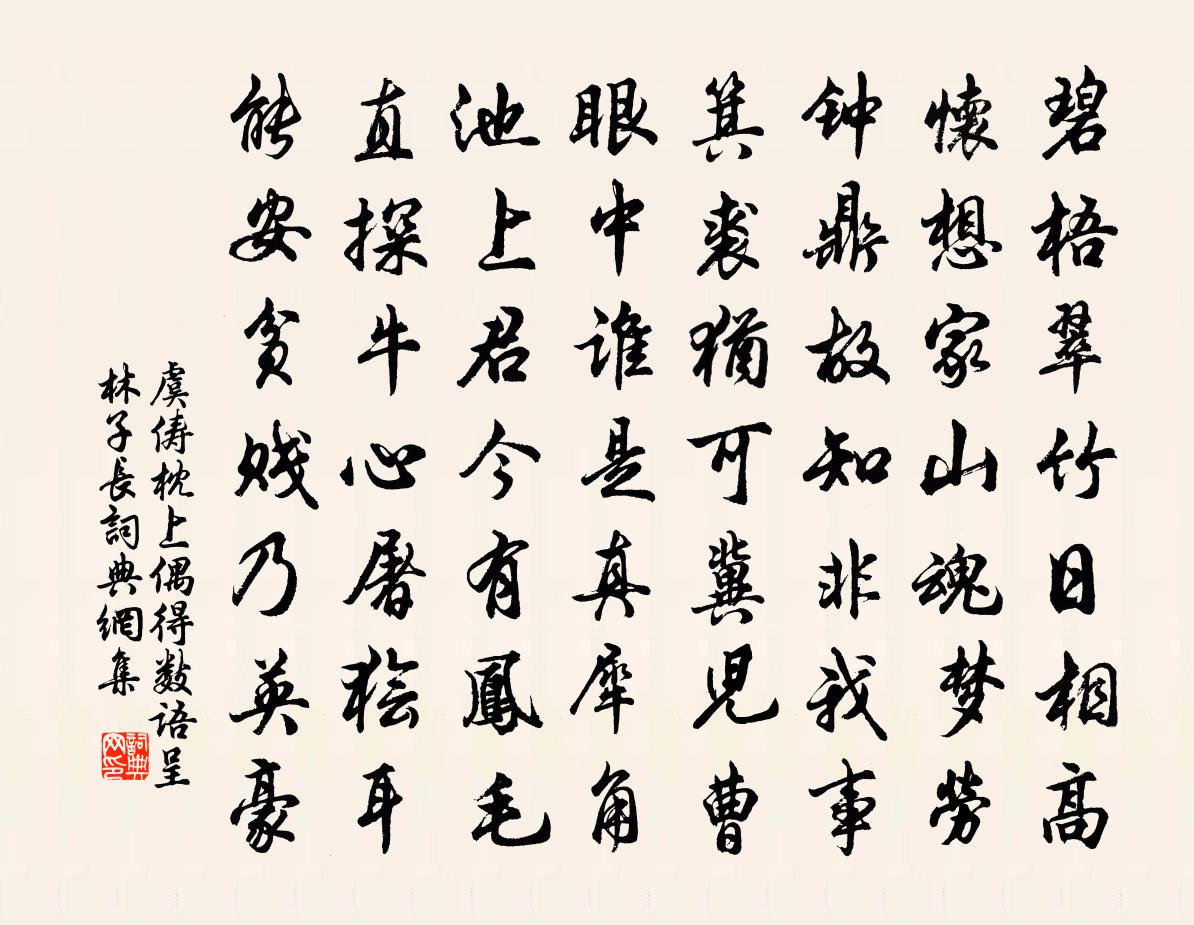 碧梧翠竹日相高
懷想家山魂梦勞
钟鼎故知非我事
箕裘猶可冀児曹
眼中谁是真犀角
池上君今有鳳毛
直探牛心屠狯耳
能安貧贱乃英豪
虞俦枕上偶得数語呈
林子長詞典網集
詞典网印